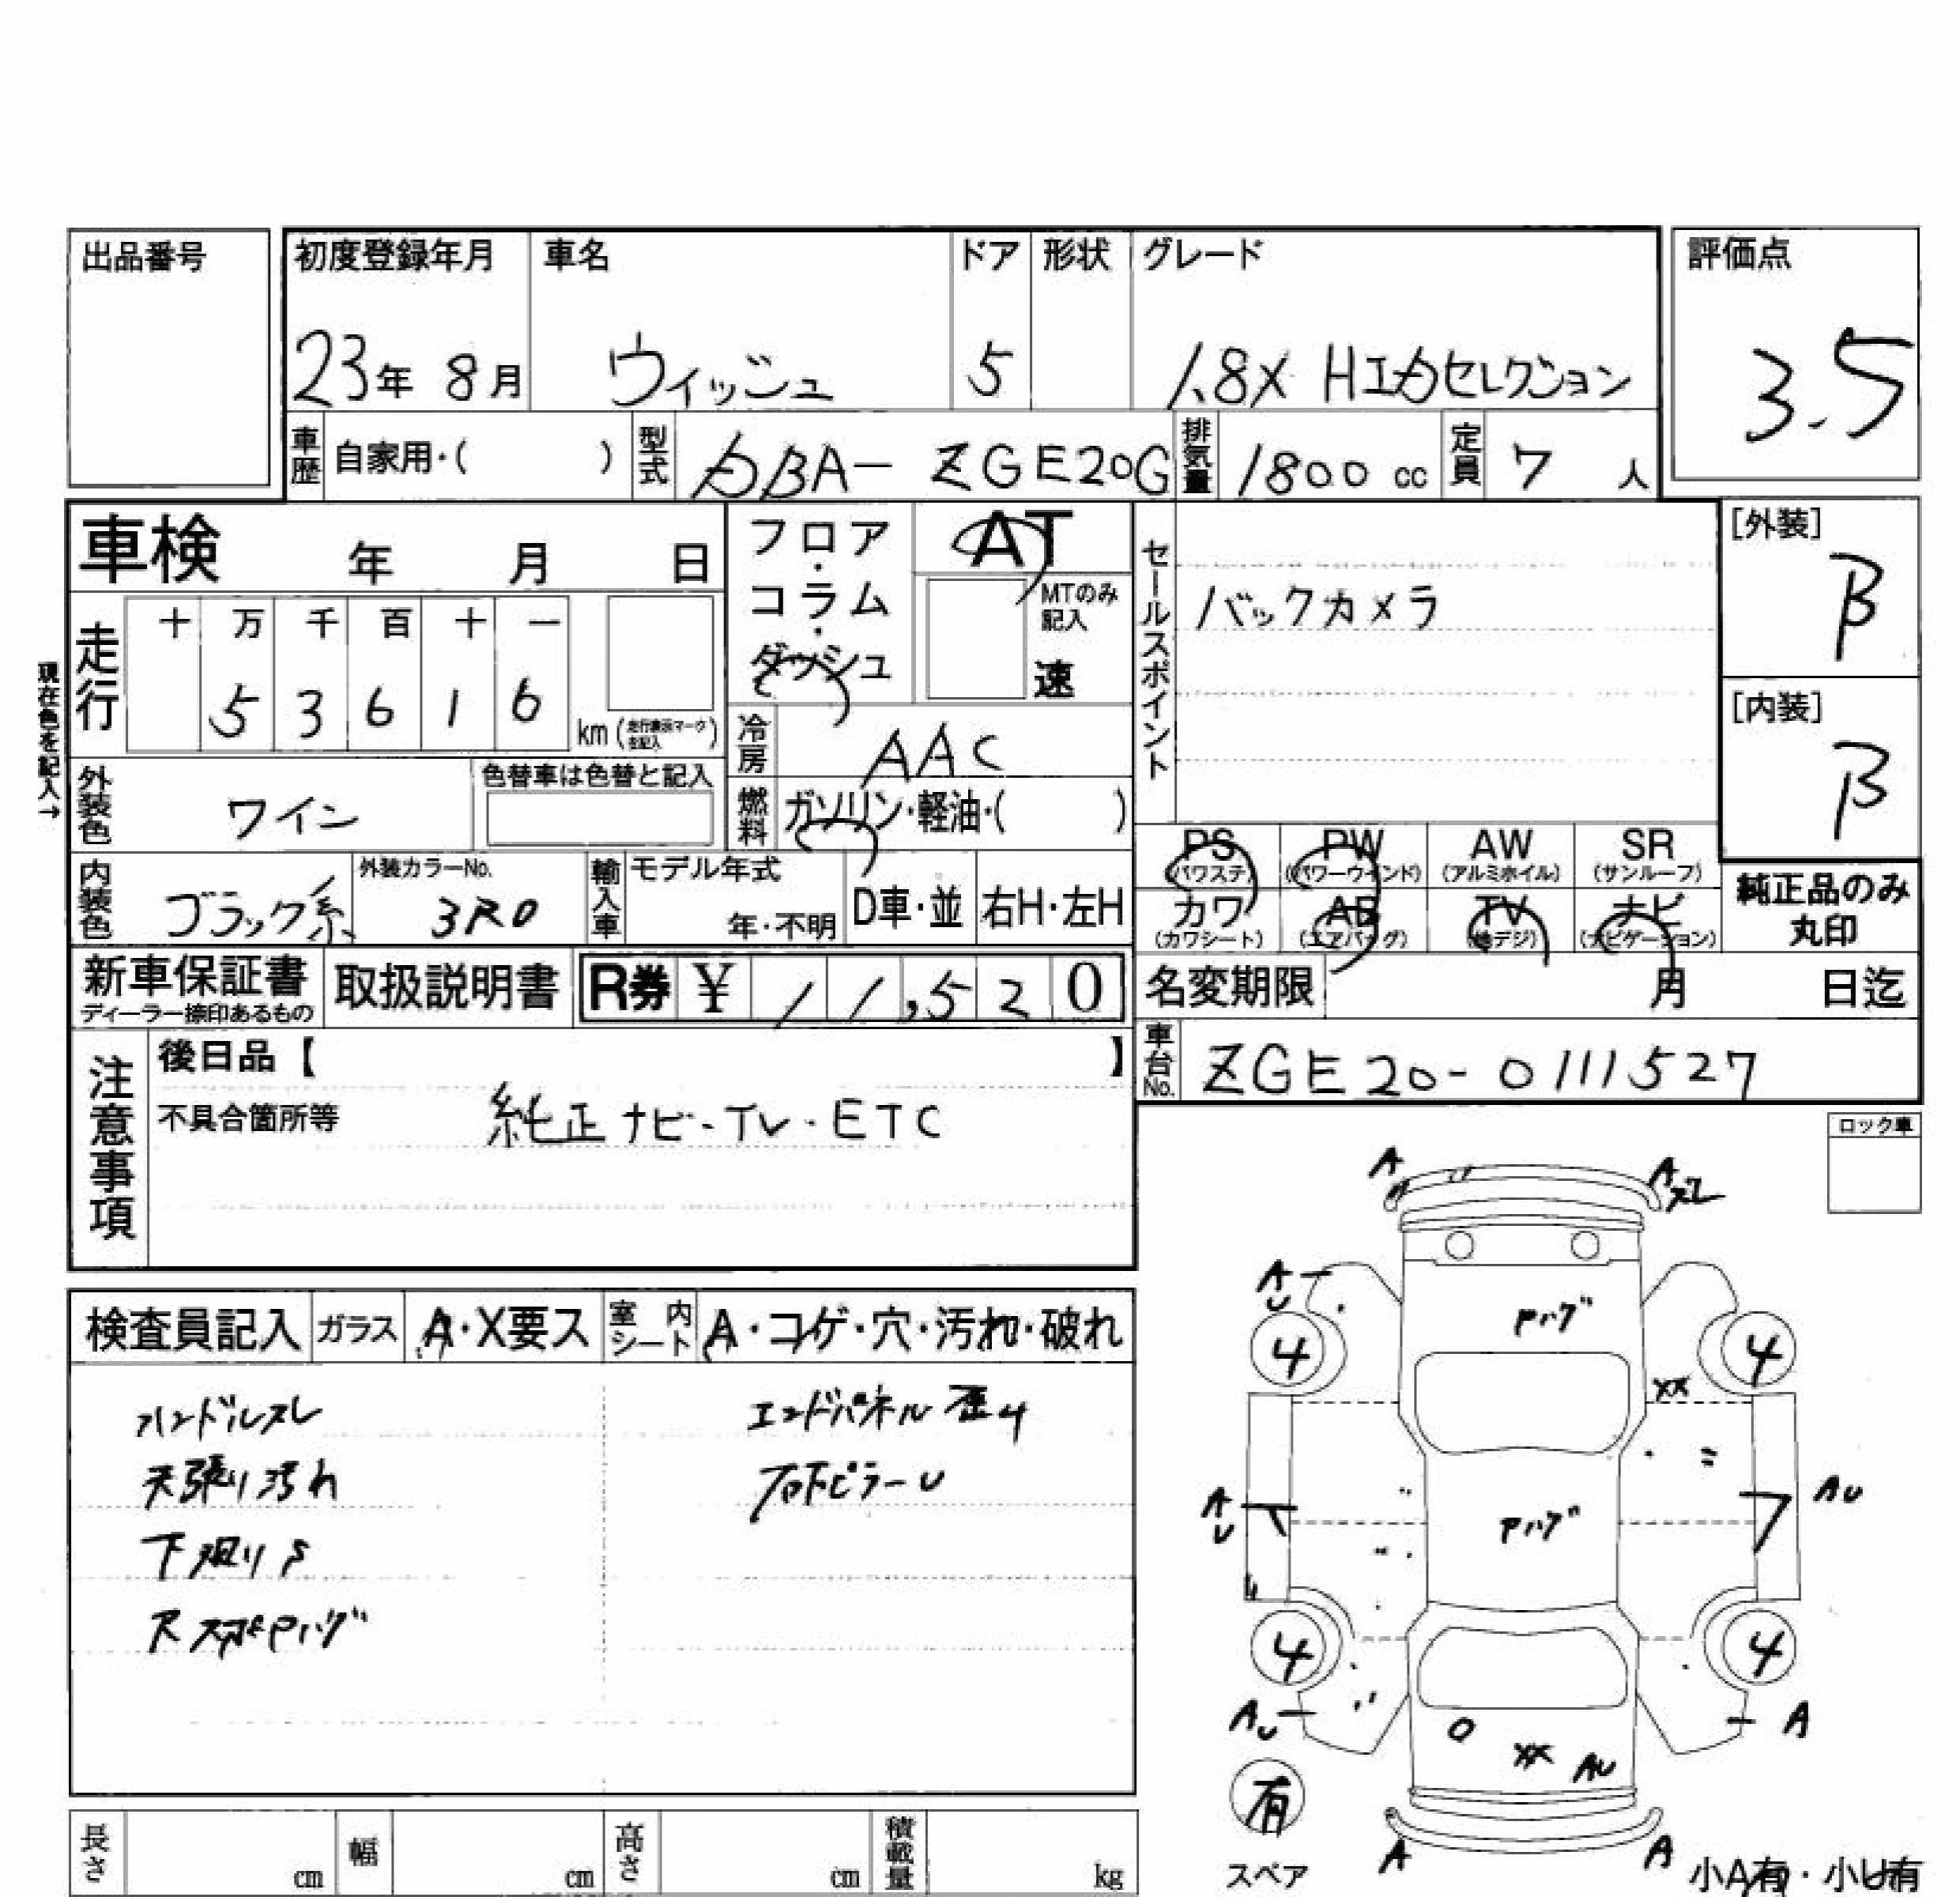 出品番号
初度登録年月 車名 ドア 形状 グレード 評価点
23年 8月 ウィッシュ 5 1.8X HIDセレクション 3.5
車歴 自家用・( ) 型式 DBA- ZGE20G 排気量 1800 cc 定員 7 人
車検 年 月 日
フロア・コラム・ダッシュ
AT
MTのみ記入
速
セールスポイント
バックカメラ
[外装]
B
[内装]
B
現在色を記入→
走行 十 万 千 百 十 一
5 3 6 1 6 km (走行表示マークを記入)
冷房 AAC
外装色 ワイン 色替車は色替と記入
燃料 ガソリン・軽油・( )
PS PW AW SR
(パワステ) (パワーウインド) (アルミホイル) (サンルーフ)
カワ AB TV ナビ
(カワシート) (エアバッグ) (地デジ) (ナビゲーション)
純正品のみ
丸印
内装色 ブラック系 外装カラーNo. 3R0 輸入車 モデル年式 年・不明 D車・並 右H・左H
新車保証書
ディーラー捺印あるもの
取扱説明書 R券 ¥ 11,520
名変期限 月 日迄
車台No. ZGE20-0111527
注意事項
後日品【 】
不具合箇所等 純正ナビ・TV・ETC
ロック車
検査員記入 ガラス A・X要ス 室内シート A・コゲ・穴・汚れ・破れ
ハンドルスレ エンドパネル歪4
天張り汚れ 右下ピラーU
下廻りS
Pハゲ
A A
X2
AU
Pハゲ
4 4
XX
AU AU
Pハゲ
4 4
AU A
XX AU
有
スペア
A A
小A有・小U有
長さ cm 幅 cm 高さ cm 積載量 kg